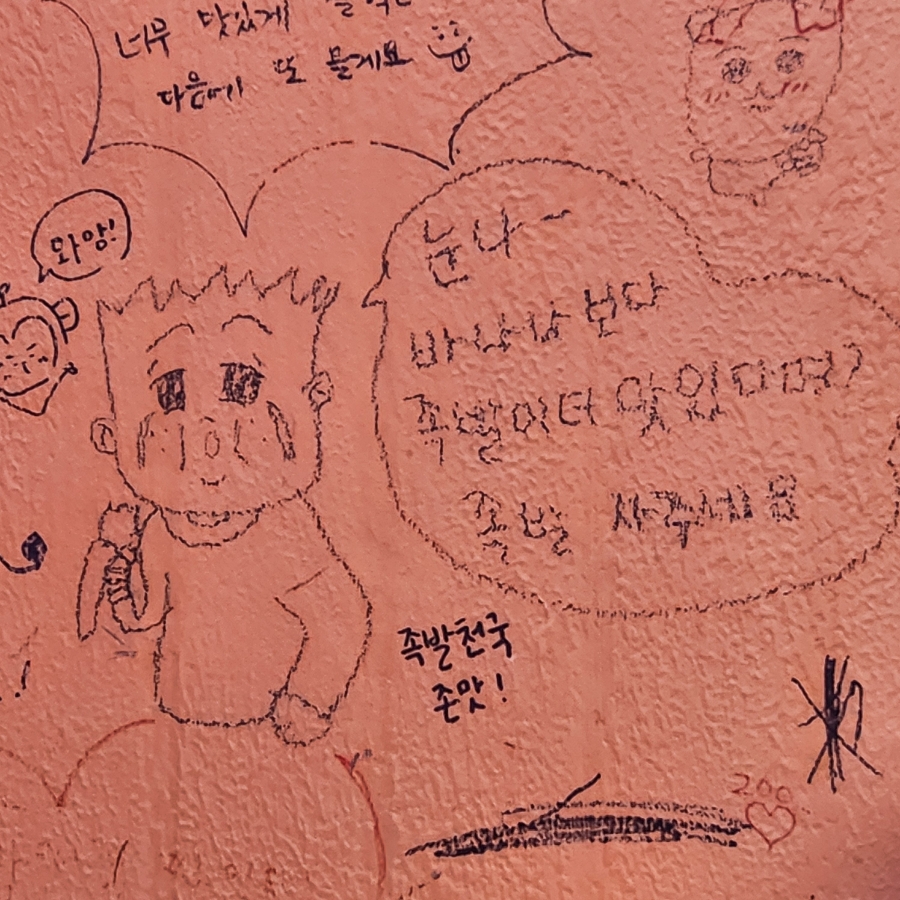 너무 맛있게
다음에 또 올게요
와앙!
눈나~
바나나 보다
족발이 더 맛있다며?
족발 사주세요
족발천국
존맛!
200